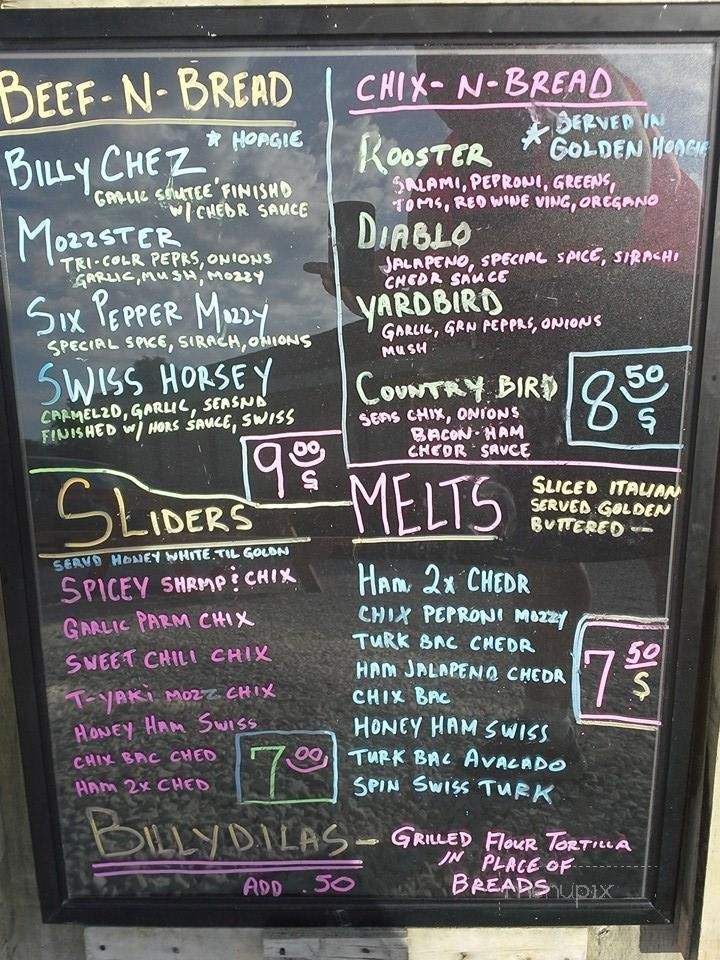 BEEF-N-BREAD
* HOAGIE
BILLY CHEZ
GARLIC SAUTEE' FINISHD
W/ CHEDR SAUCE
MOZZSTER
TRI-COLR PEPRS, ONIONS
GARLIC, MUSH, MOZZY
SIX PEPPER MOZZY
SPECIAL SPICE, SIRACH, ONIONS
SWISS HORSEY
CARMELZD, GARLIC, SEASND
FINISHED W/ HORS SAUCE, SWISS
9 00 $
CHIX-N-BREAD
* SERVED IN
GOLDEN HOAGIE
ROOSTER
SALAMI, PEPRONI, GREENS,
TOMS, RED WINE VING, OREGANO
DIABLO
JALAPENO, SPECIAL SPICE, SIRACHI
CHEDR SAUCE
YARDBIRD
GARLIC, GRN PEPPRS, ONIONS
MUSH
COUNTRY BIRD
SEAS CHIX, ONIONS
BACON HAM
CHEDR SAUCE
8 50 $
SLIDERS
SERVD HONEY WHITE TIL GOLDN
SPICEY SHRMP & CHIX
GARLIC PARM CHIX
SWEET CHILI CHIX
T-YAKI MOZZ CHIX
HONEY HAM SWISS
CHIX BAC CHED
HAM 2X CHED
7 00
MELTS
SLICED ITALIAN
SERVED GOLDEN
BUTTERED —
HAM 2X CHEDR
CHIX PEPRONI MOZZY
TURK BAC CHEDR
HAM JALAPENO CHEDR
CHIX BAC
HONEY HAM SWISS
TURK BAC AVACADO
SPIN SWISS TURK
7 50 $
BILLYDILAS -
ADD .50
GRILLED FLOUR TORTILLA
IN PLACE OF
BREADS
menupix